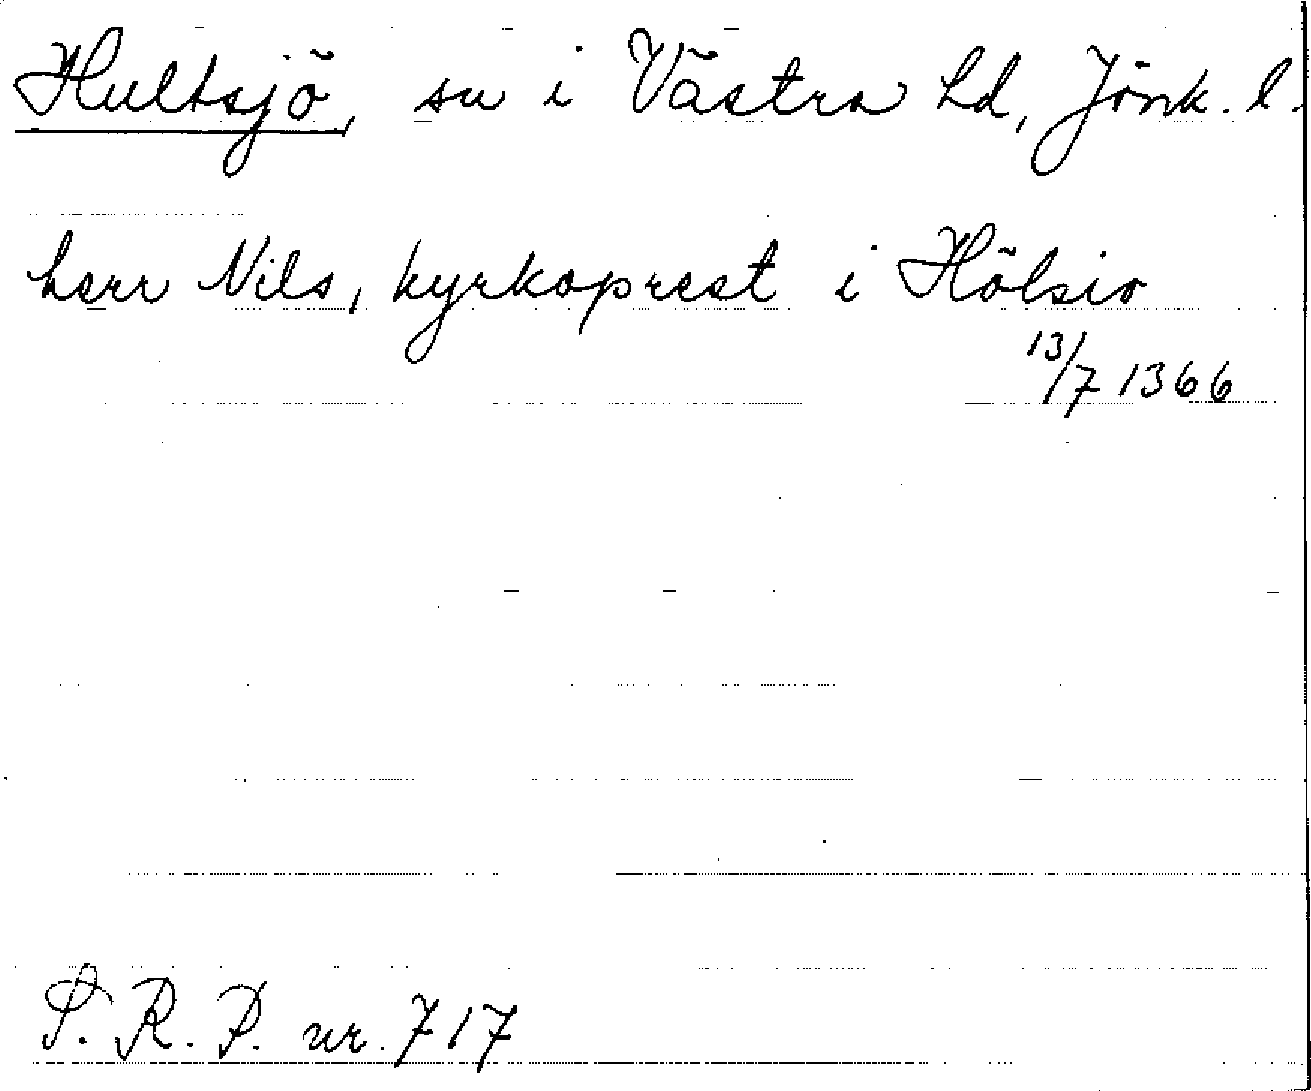 Hultsjö, sn i Västra hd, Jönk. l.
herr Nils, kyrkoprest i Hölsio
13/7 1366
S. R. P. nr. 717